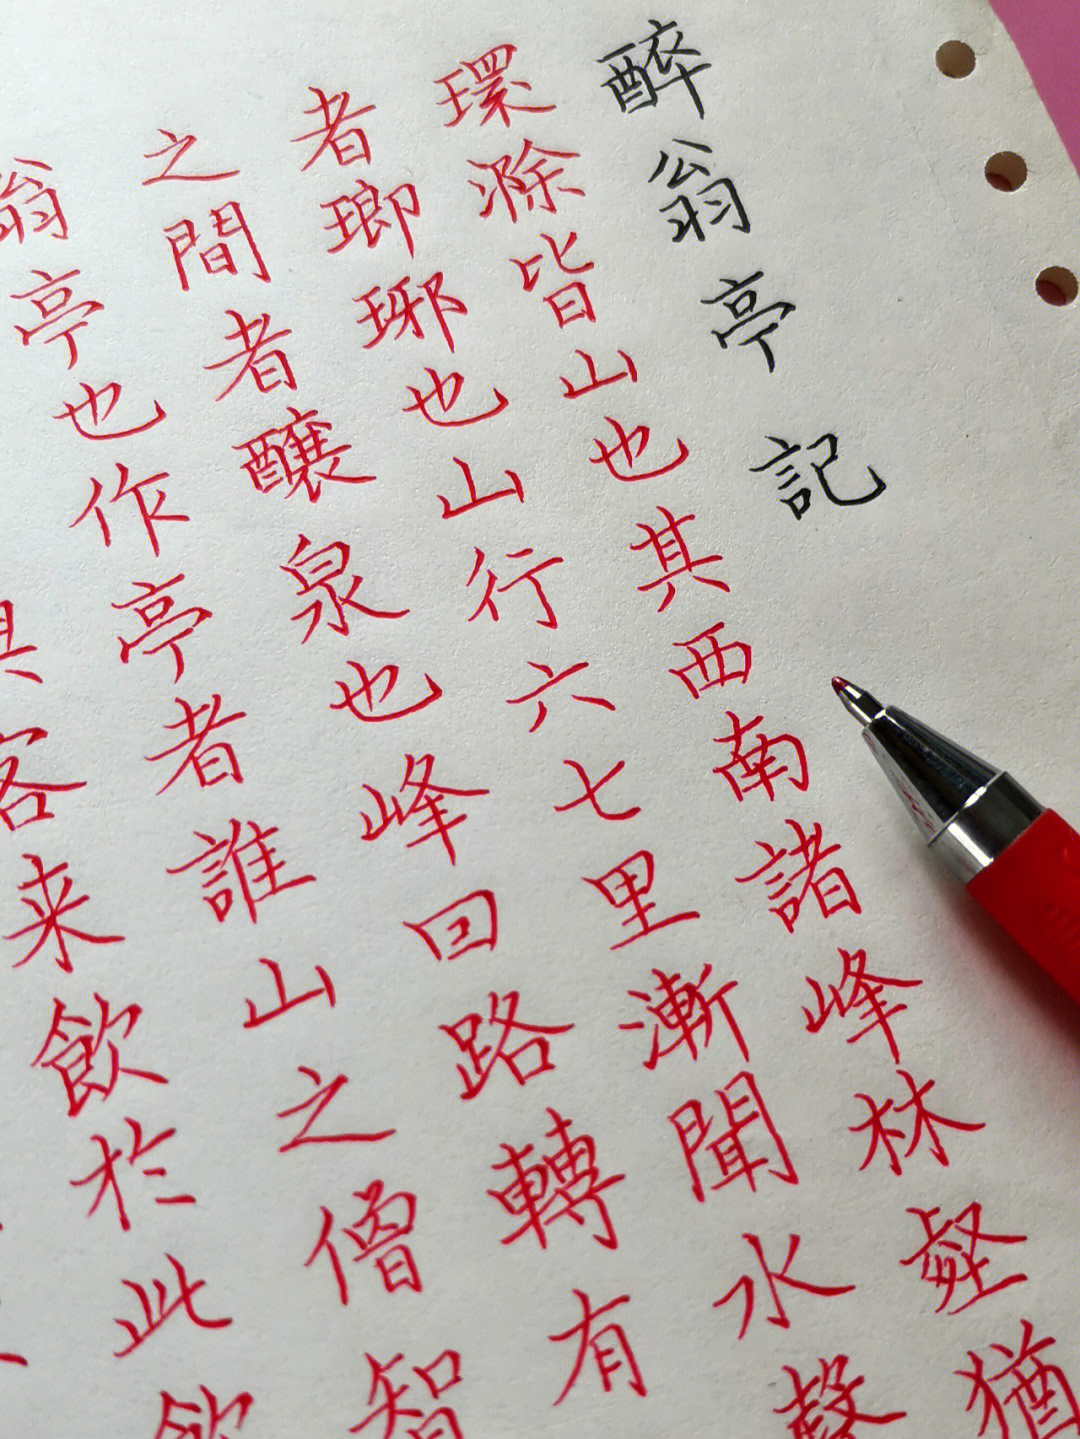 醉翁亭記
環滁皆山也其西南諸峰林壑猶
者瑯琊也山行六七里漸聞水聲
之間者醸泉也峰回路轉有
翁亭也作亭者誰山之僧智
客来飲於此飲